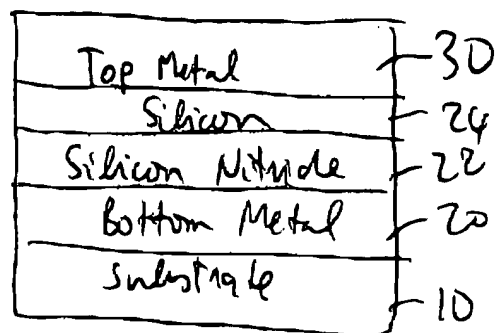 Top Metal 30
Silicon 24
Silicon Nitride 22
Bottom Metal 20
Substrate 10